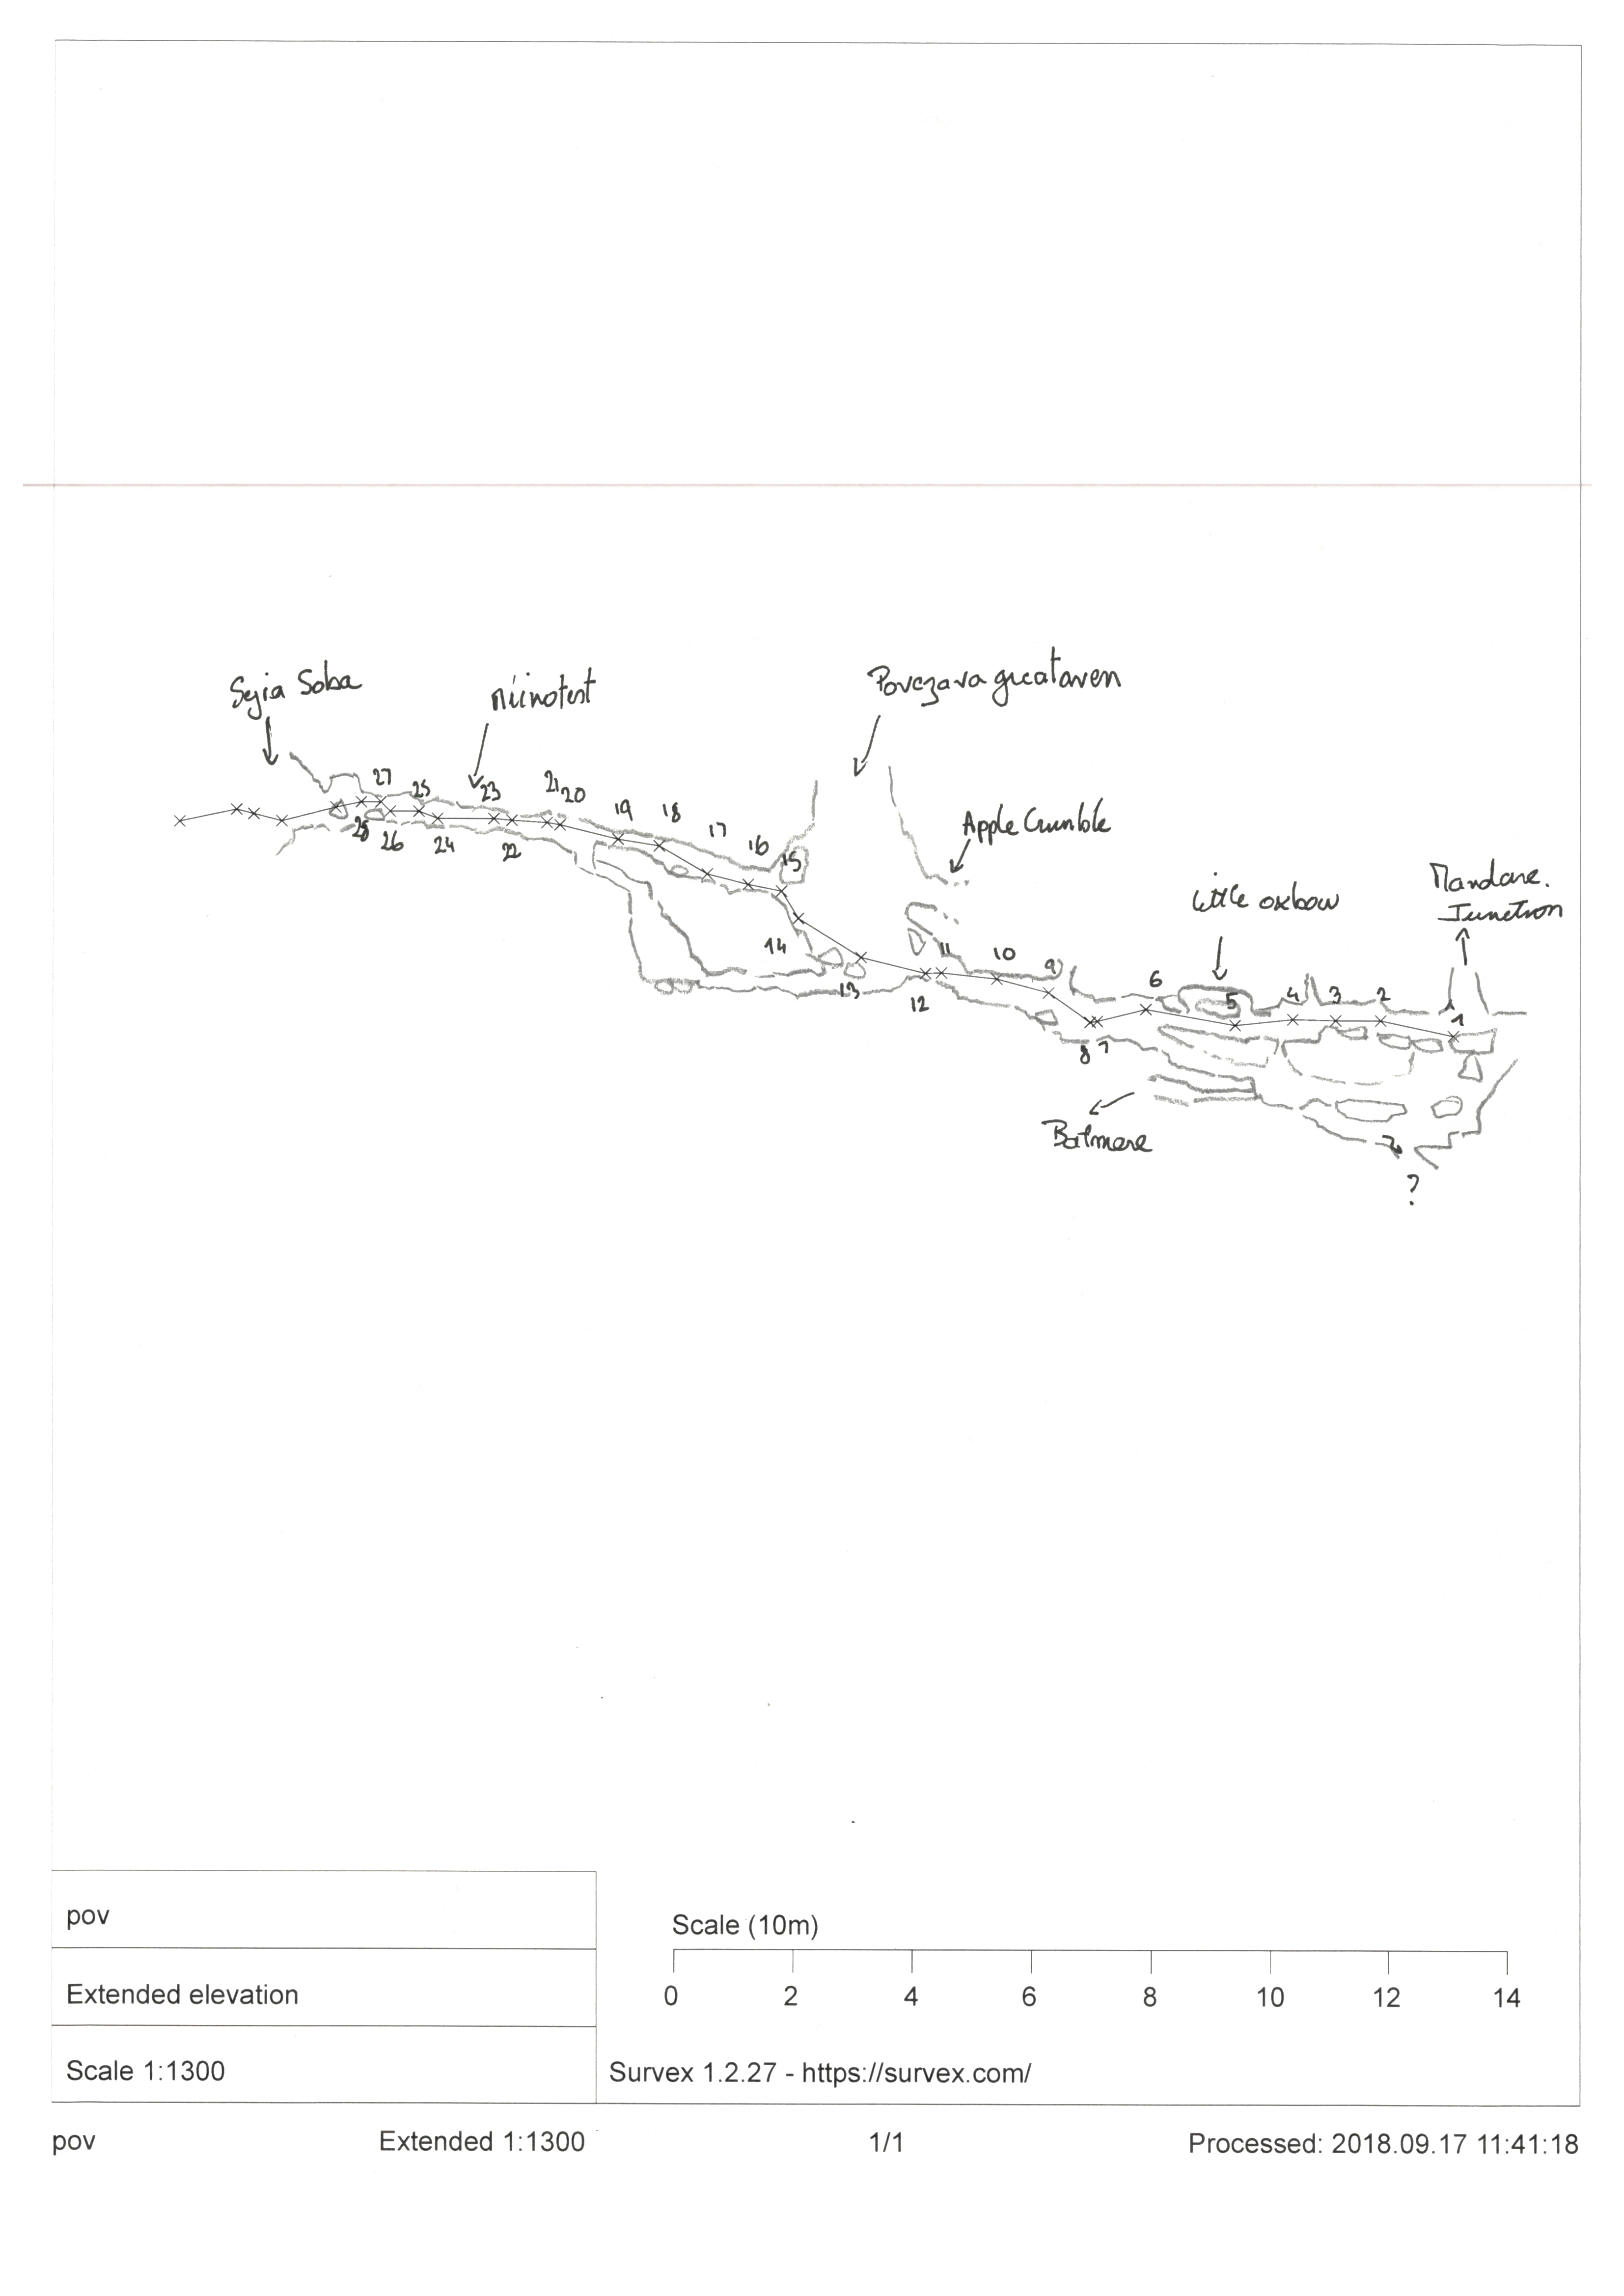 Sejia Soba
Povezava great aven
Apple Crumble
Little oxbow
Mandare.
Junction
27
25
23
21
20
19
18
17
16
15
28
26
24
22
14
13
12
11
10
9
8
7
6
5
4
3
2
1
Batmere
?
pov
Extended elevation
Scale 1:1300
Scale (10m)
0 2 4 6 8 10 12 14
Survex 1.2.27 - https://survex.com/
pov Extended 1:1300 1/1 Processed: 2018.09.17 11:41:18